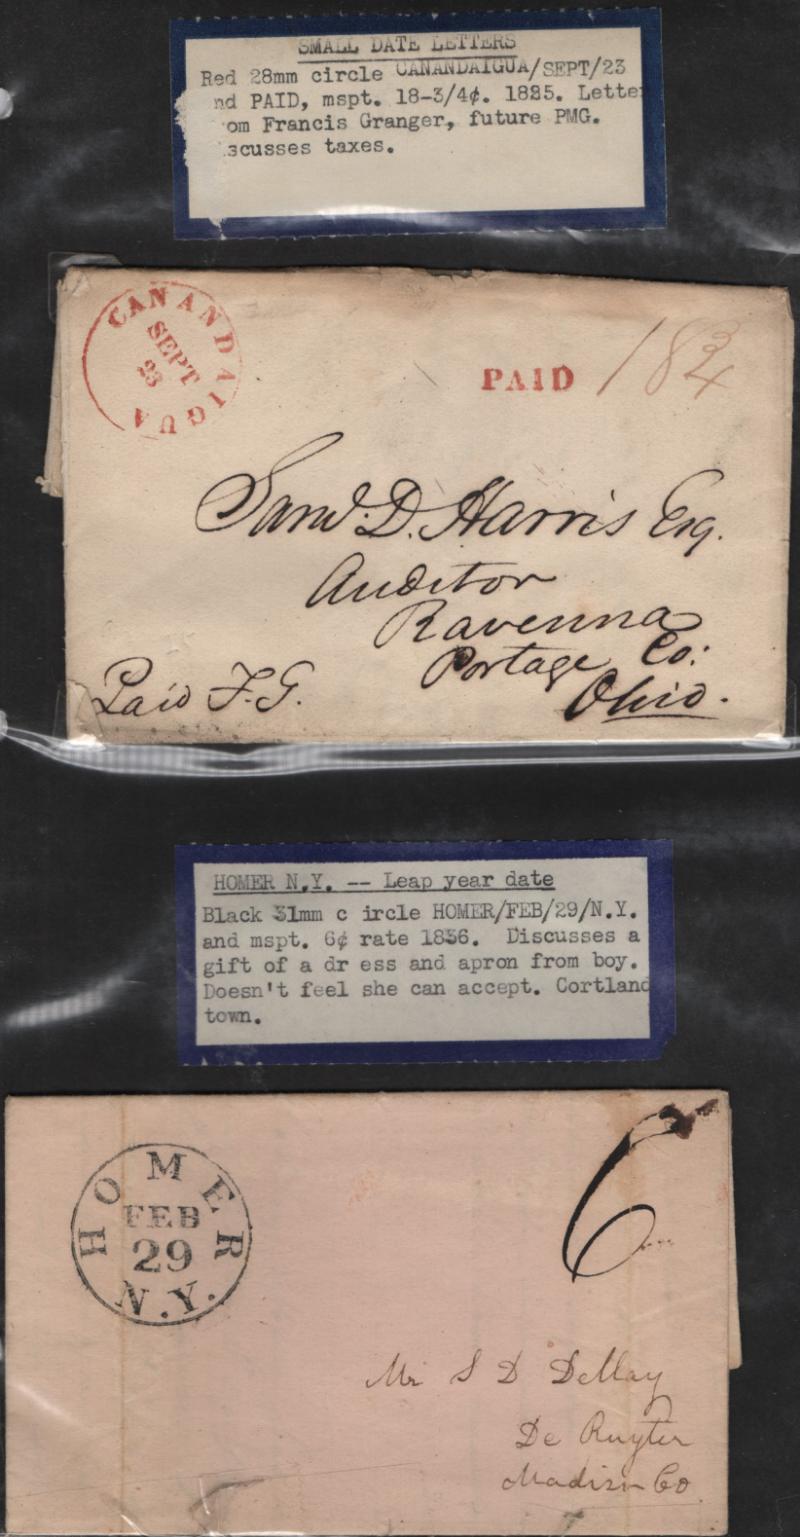 SMALL DATE LETTERS
Red 28mm circle CANANDAIGUA/SEPT/23
nd PAID, mspt. 18-3/4¢. 1825. Letter
om Francis Granger, future PMG.
scusses taxes.
CANANDAIGUA
SEPT
23
PAID 18 3/4
Saml. D. Harris Esq.
Auditor
Ravenna
Portage Co:
Ohio.
Paid F.G.
HOMER N.Y. -- Leap year date
Black 31mm c ircle HOMER/FEB/29/N.Y.
and mspt. 6¢ rate 1836. Discusses a
gift of a dr ess and apron from boy.
Doesn't feel she can accept. Cortland
town.
HOMER
FEB
29
N.Y.
6
Mr S D DeMay
De Ruyter
Madison Co